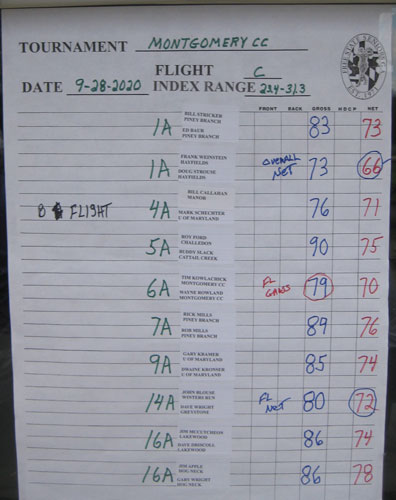 TOURNAMENT MONTGOMERY CC
FLIGHT C
DATE 9-28-2020 INDEX RANGE 23.4-31.3
FRONT BACK GROSS HDCP NET
BILL STRICKER
PINEY BRANCH
1A 83 73
ED BAUR
PINEY BRANCH
FRANK WEINSTEIN
HAYFIELDS
1A OVERALL NET 73 66
DOUG STROUSE
HAYFIELDS
BILL CALLAHAN
MANOR
B FLIGHT 4A 76 71
MARK SCHECHTER
U OF MARYLAND
ROY FORD
CHALLEDON
5A 90 75
BUDDY SLACK
CATTAIL CREEK
TIM KOWLACHICK
MONTGOMERY CC
6A FL GROSS 79 70
WAYNE ROWLAND
MONTGOMERY CC
RICK MILLS
PINEY BRANCH
7A 89 76
ROB MILLS
PINEY BRANCH
GARY KRAMER
U OF MARYLAND
9A 85 74
DWAINE KRONSER
U OF MARYLAND
JOHN BLOUSE
WINTERS RUN
14A FL NET 80 72
DAVE WRIGHT
GREYSTONE
JIM MCCUTCHEON
LAKEWOOD
16A 86 74
DAVE DRISCOLL
LAKEWOOD
JIM APPLE
HOG NECK
16A 86 78
GARY WRIGHT
HOG NECK